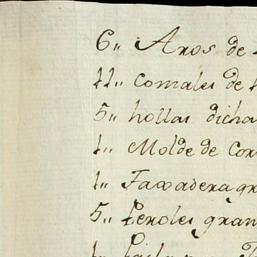 6,, Aros de
11,, Comales de
5,, hollas dicha
1,, Molde de Cor
1,, Taxadera gr
5,, Peroles gran
1,,